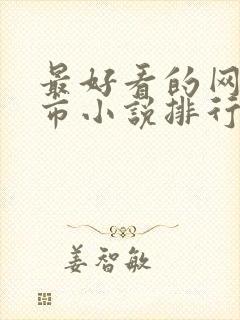 最好看的网
市小说排行
姜智敏